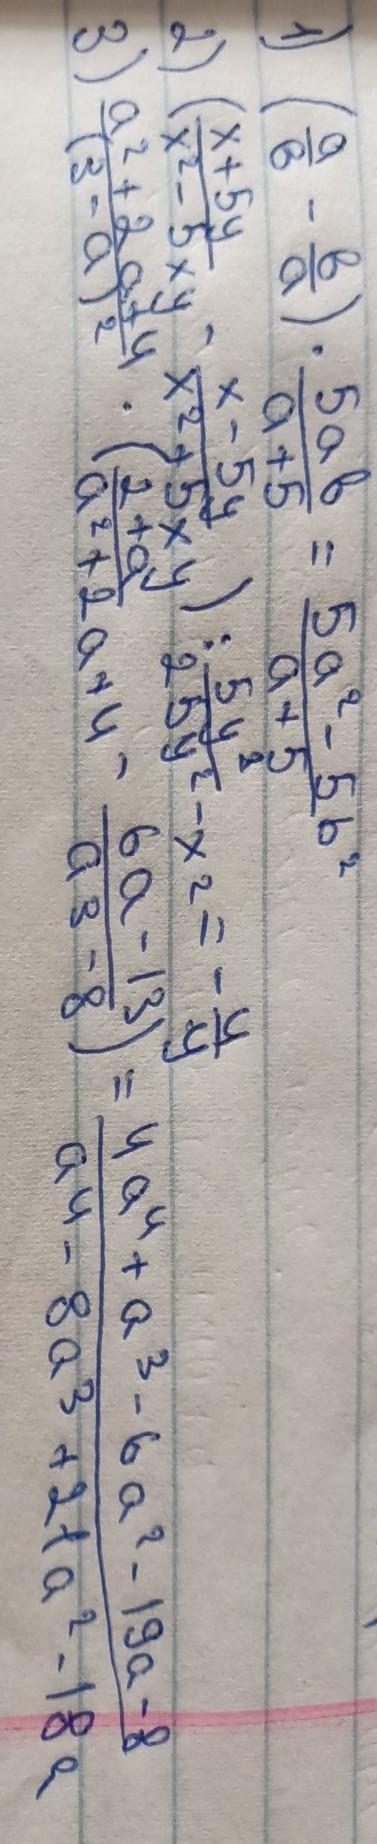 1) (a/b - b/a) · 5ab/a+5 = 5a² - 5b²/a+5
2) (x+5y/x² - 5xy - x - 5y/x² + 5xy) : 5y²/25y² - x² = - 4/y
3) a² + 2a + 4/(3 - a)² · (2+a/a² + 2a + 4 - 6a - 13/a³ - 8) = 4a⁴ + a³ - 6a² - 19a - 8/a⁴ - 8a³ + 21a² - 18a